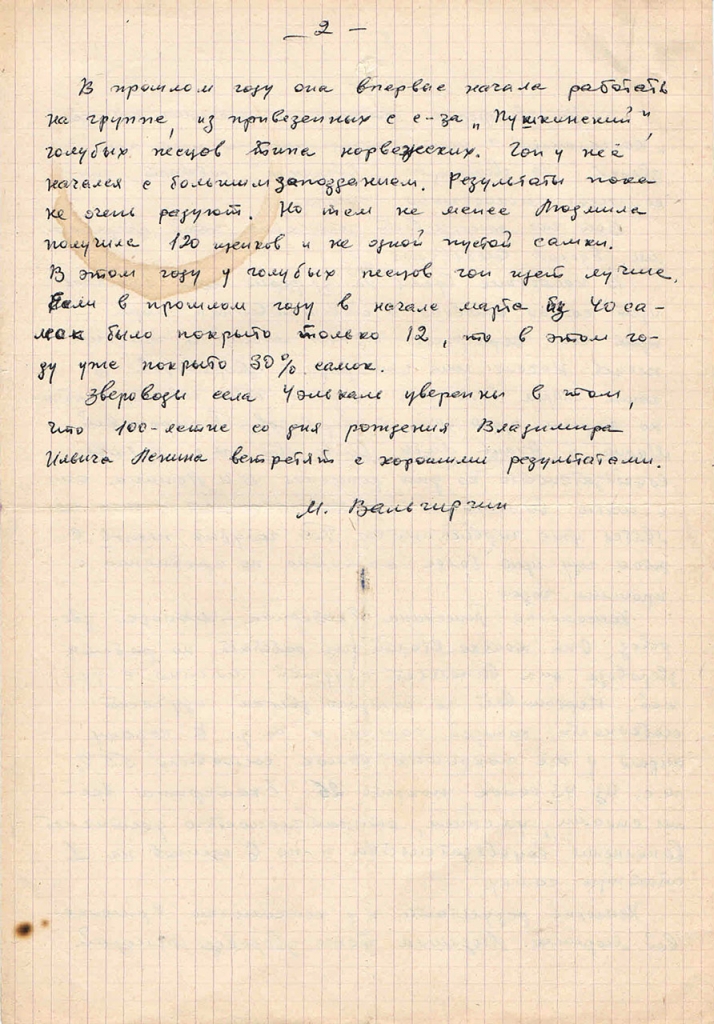 — 2 —
В прошлом году она впервые начала работать
на группе, из привезенных с с-за „Пушкинский",
голубых песцов типа норвежских. Гон у неё
начался с большим запозданием. Результаты пока
не очень радуют. Но тем не менее Людмила
получила 120 щенков и не одной пустой самки.
В этом году у голубых песцов гон идет лучше.
Если в прошлом году в начале марта из 40 са-
мок было покрыто только 12, то в этом го-
ду уже покрыто 30% самок.
Звероводы села Уэлькаль уверенны в том,
что 100-летие со дня рождения Владимира
Ильича Ленина встретят с хорошими результатами.
М. Вальгиргин